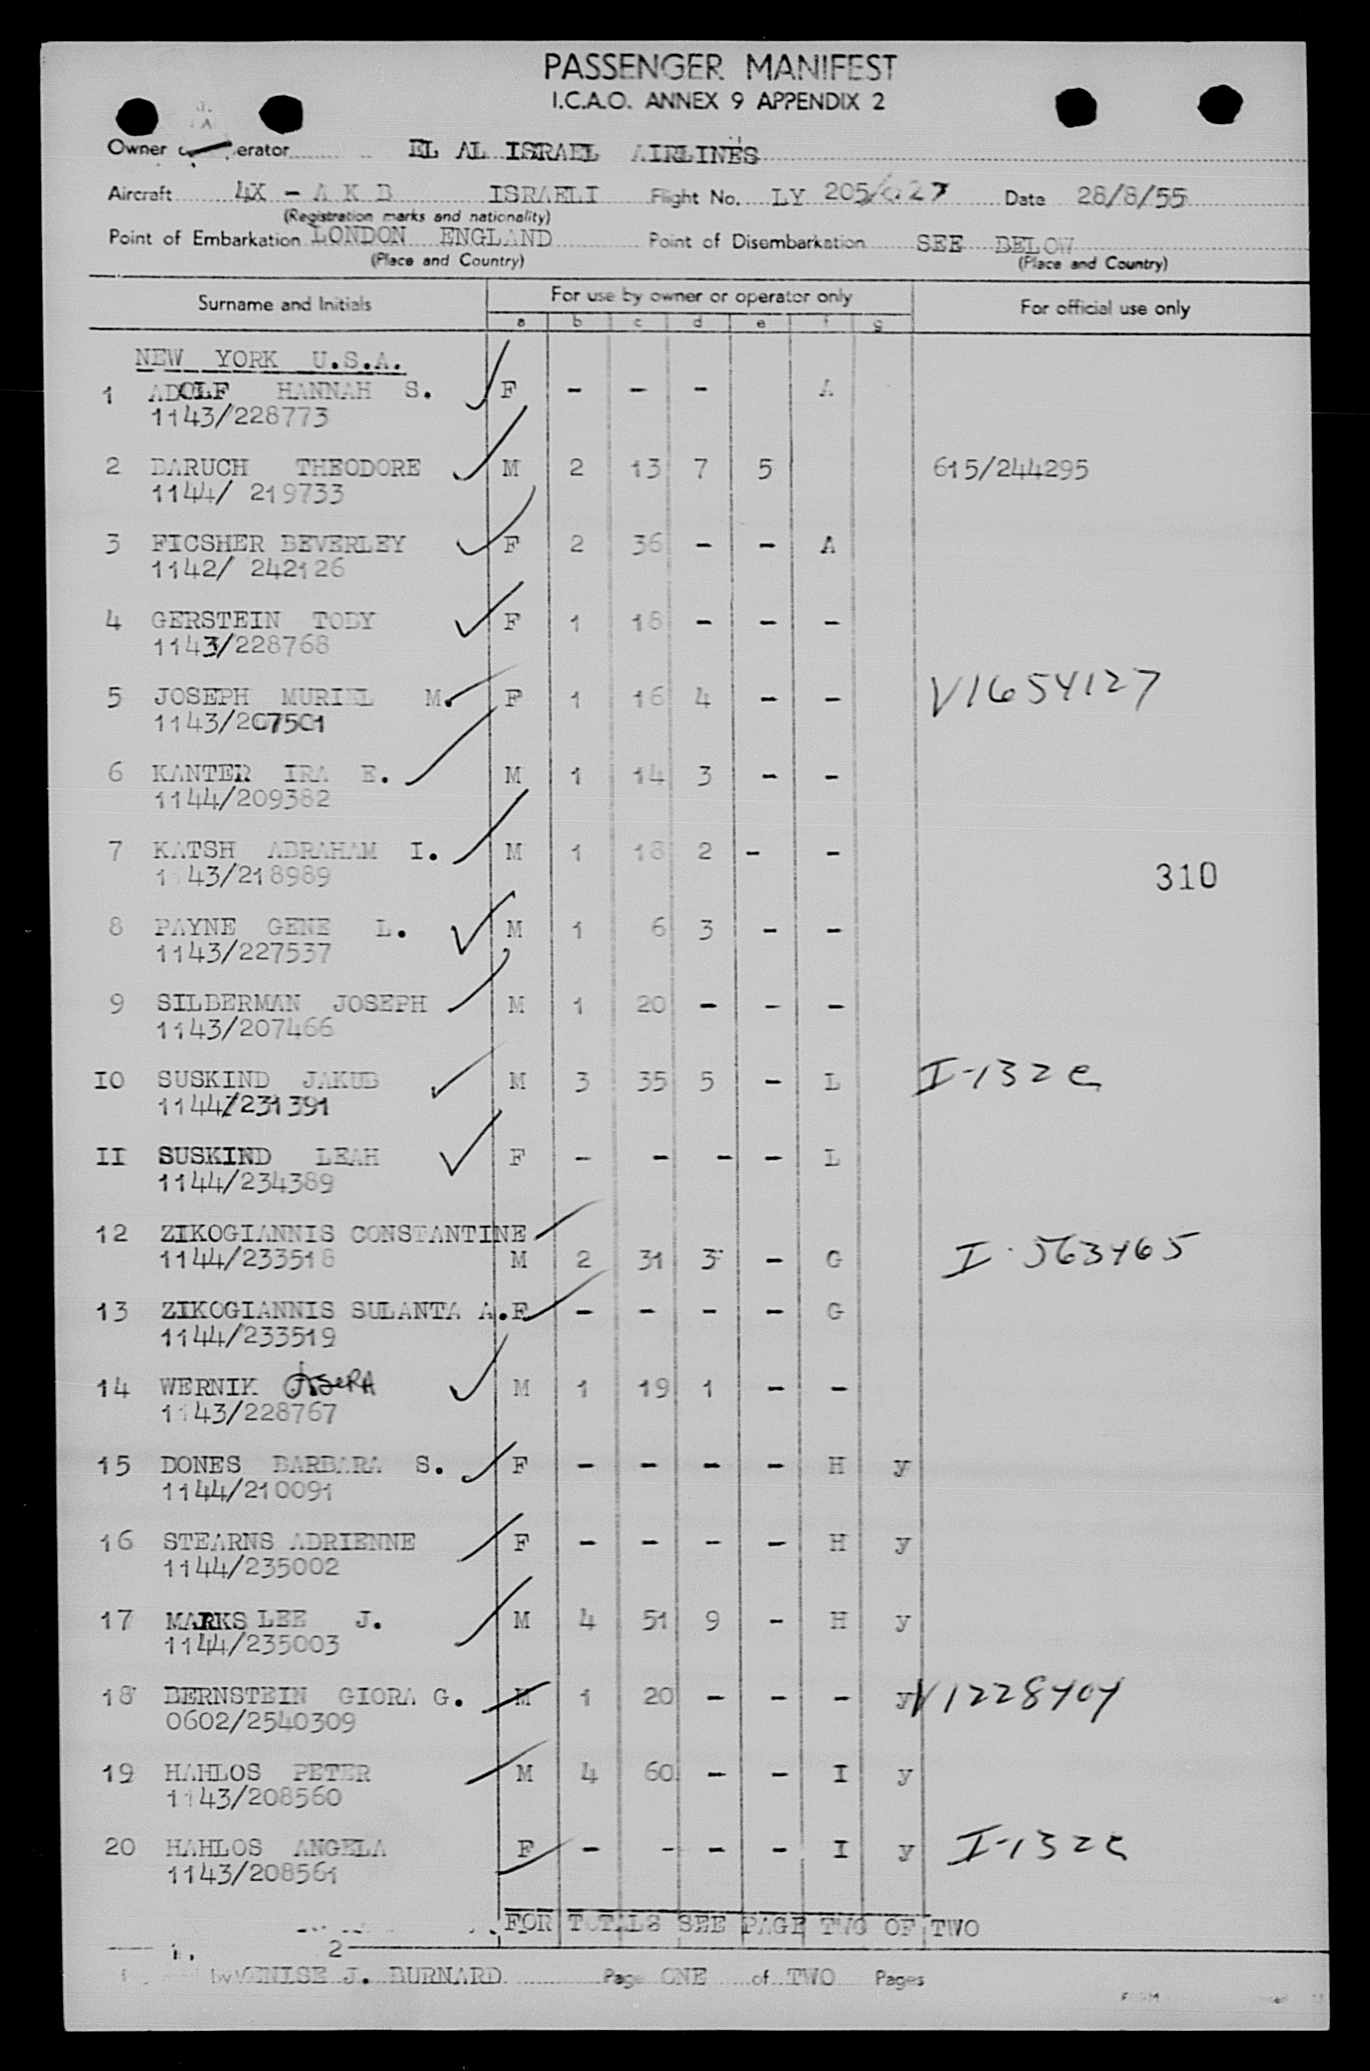 PASSENGER MANIFEST
I.C.A.O. ANNEX 9 APPENDIX 2
Owner erator EL AL ISRAEL AIRLINES
Aircraft 4X - A K B ISRAELI Flight No. LY 205/ Date 28/8/55
(Registration marks and nationality)
Point of Embarkation LONDON ENGLAND Point of Disembarkation SEE BELOW
(Place and Country) (Place and Country)
Surname and Initials For use by owner or operator only For official use only
a b c d e f g
NEW YORK U.S.A.
1 ADOLF HANNAH S. F - - - A
1143/228773
2 BARUCH THEODORE M 2 13 7 5 615/244295
1144/ 219733
3 FICSHER BEVERLEY F 2 36 - - A
1142/ 242126
4 GERSTEIN TOBY F 1 18 - - -
1143/228768
5 JOSEPH MURIEL M. F 1 16 4 - - V1654127
1143/207501
6 KANTER IRA E. M 1 14 3 - -
1144/209382
7 KATSH ABRAHAM I. M 1 18 2 - -
1143/218989 310
8 PAYNE GENE L. M 1 6 3 - -
1143/227537
9 SILBERMAN JOSEPH M 1 20 - - -
1143/207466
IO SUSKIND JAKUB M 3 35 5 - L I-132
1144/231391
II SUSKIND LEAH F - - - - L
1144/234389
12 ZIKOGIANNIS CONSTANTINE
1144/233518 M 2 31 3 - G I-563465
13 ZIKOGIANNIS SULANTA A. F - - - - G
1144/233519
14 WERNIK M 1 19 1 - -
1143/228767
15 DONES BARBARA S. F - - - - H y
1144/210091
16 STEARNS ADRIENNE F - - - - H y
1144/235002
17 MARKS LEE J. M 4 51 9 - H y
1144/235003
18 BERNSTEIN GIORA G. M 1 20 - - - y V1228404
0602/2540309
19 HAHLOS PETER M 4 60 - - I y
1143/208560
20 HAHLOS ANGELA F - - - - I y I-132
1143/208561
FOR TOTALS SEE PAGE TWO OF TWO
2
by VENISE J. BURNARD Page ONE of TWO Pages